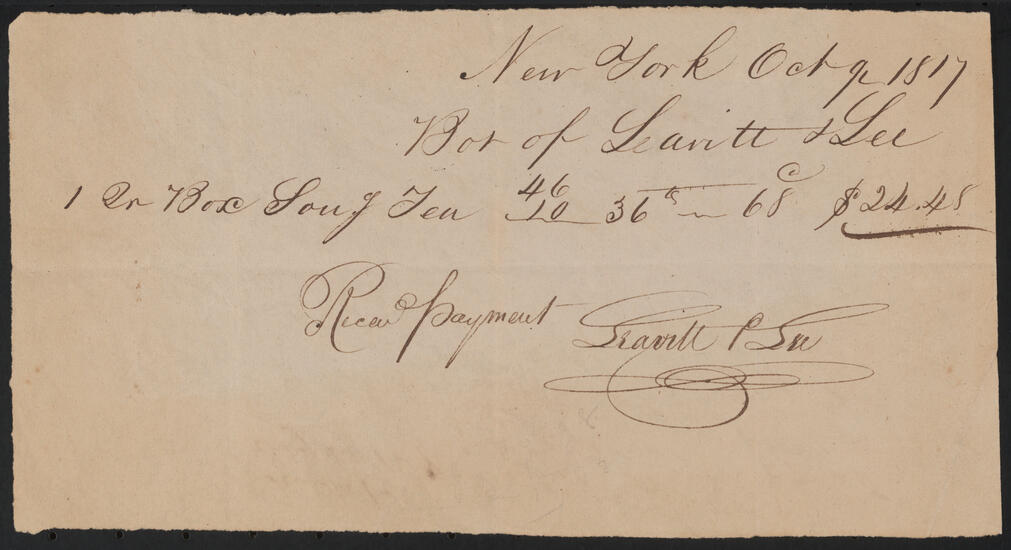 New York Oct 9 1817
Bot of Leavitt & Lee
1 Qr Box Soug Tea 46 10 36 lbs 68c $24.48
Recd payment Leavitt & Lee